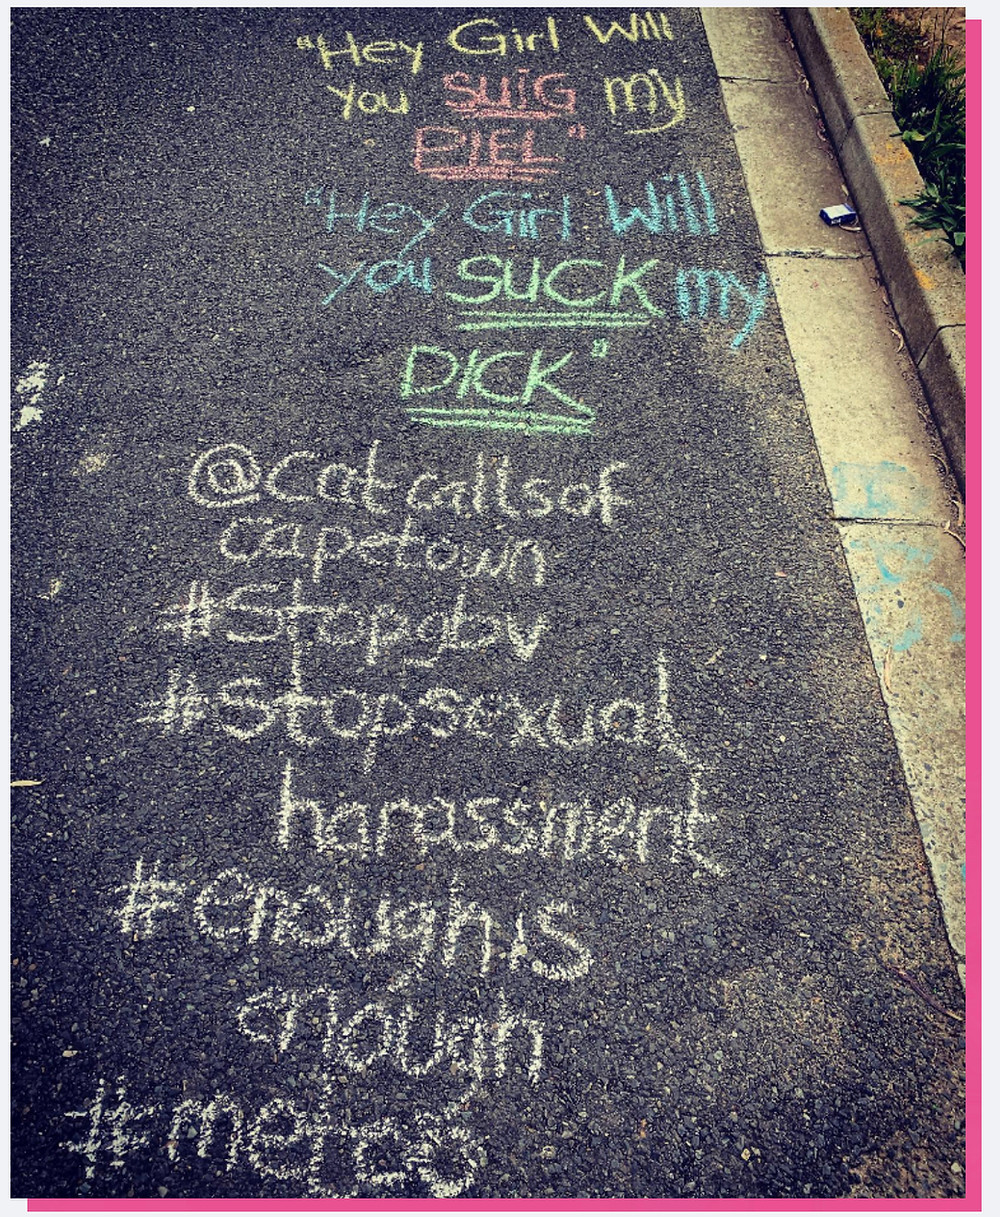 "Hey Girl Will
you SUIG my
PIEL"
"Hey Girl Will
you SUCK my
DICK"
@catcallsof
capetown
#Stopgbv
#Stopsexual
harassment
#enoughis
enough
#metoo